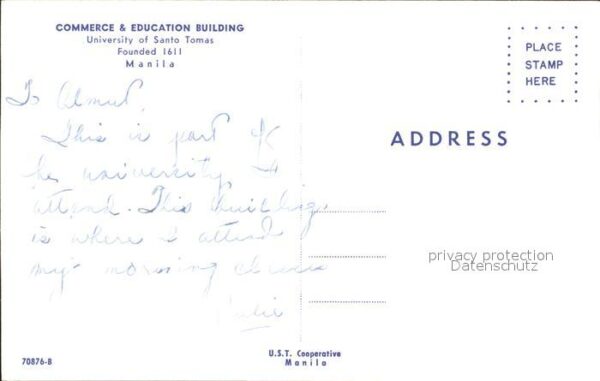 COMMERCE & EDUCATION BUILDING
University of Santo Tomas
Founded 1611
Manila
PLACE
STAMP
HERE
To Almut,
This is part of
he university I
attend. This building
is where I attend
my morning classes
ADDRESS
privacy protection
Datenschutz
70876-B
U.S.T. Cooperative
Manila